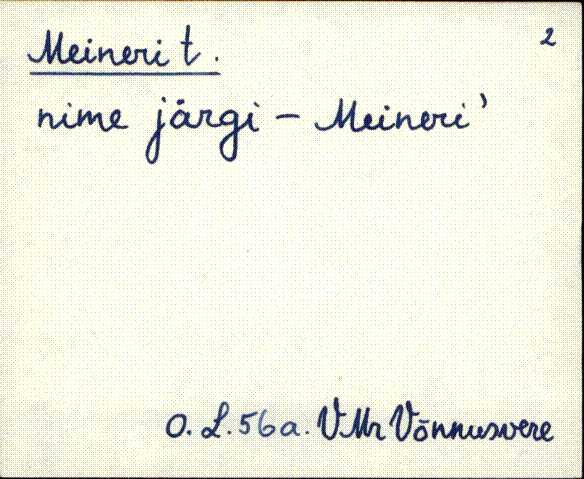 2
Meineri t.
nime järgi – Meineri'
O. L. 56 a. VMr Võnnusvere